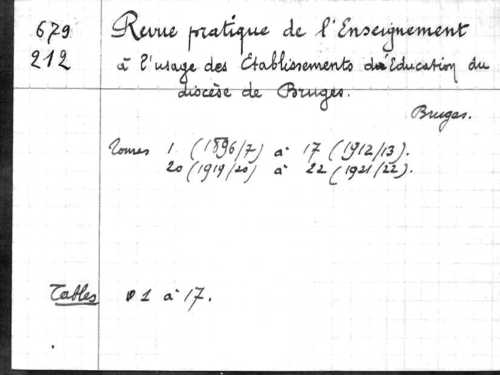 679 Revue pratique de l'Enseignement
212 à l'usage des Établissements d'Éducation du
diocèse de Bruges.
Bruges.
Tomes 1 (1896/7) à 17 (1912/13).
20 (1919/20) à 22 (1921/22).
Tables 1 à 17.